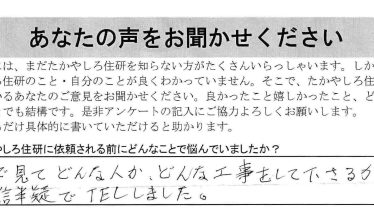 あなたの声をお聞かせください
には、まだたかやしろ住研を知らない方がたくさんいらっしゃいます。しか
ろ住研のこと・自分のことが良くわかっていません。そこで、たかやしろ住
いるあなたのご意見をお聞かせください。良かったこと嬉しかったこと、ど
とでも結構です。是非アンケートの記入にご協力よろしくお願いします。
るだけ具体的に書いていただけると助かります。
やしろ住研に依頼される前にどんなことで悩んでいましたか？
で見てどんな人か、どんな工事をして下さるか
信半疑でTELしました。